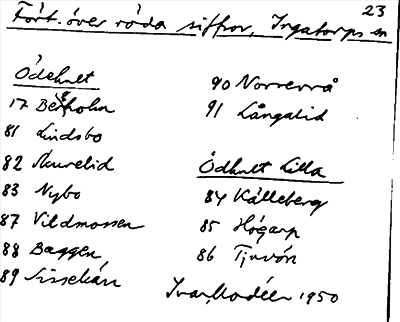 23
Fört. över röda siffror, Ingatorps sn
Ödehult
17 Bexholm
81 Lindsbo
82 Murelid
83 Nybo
87 Vildmossen
88 Baggen
89 Sissekärr
90 Norrervrå
91 Långalid
Ödhult Lilla
84 Källeberg
85 Högarp
86 Tjuvön
Ivar Modéer 1950